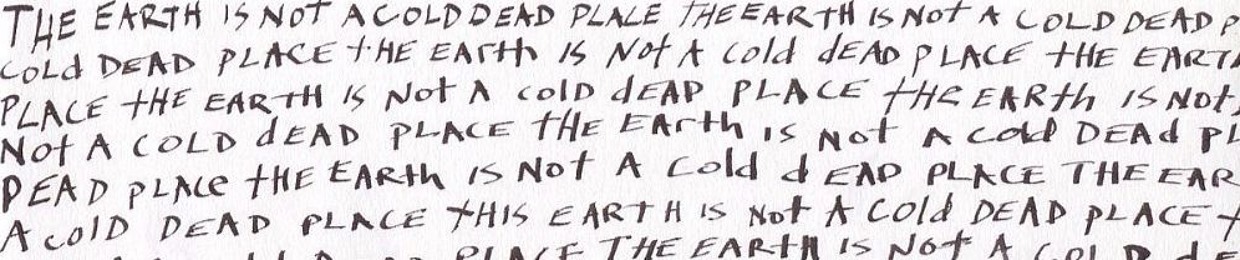 THE EARTH IS NOT A COLD DEAD PLALE THE EARTH IS NOT A COLD DEAD P
COLd DEAD PLACE tHE EArth IS Not A Cold dEAD PLACE tHE EARTH
PLACE tHE EARTH IS Not A colD dEAD PLACE tHe EARth IS Not
Not A COLD dEAD PLACE tHE EArth is Not A Cold DEAd PL
DEAD pLAce tHE EARth IS Not A Cold d EAD PLACE THE EAR
A colD DEAD PLACE tHIS EARTH IS Not A Cold DEAD pLACE t
PLACE THE EARtH IS Not A COLD dE